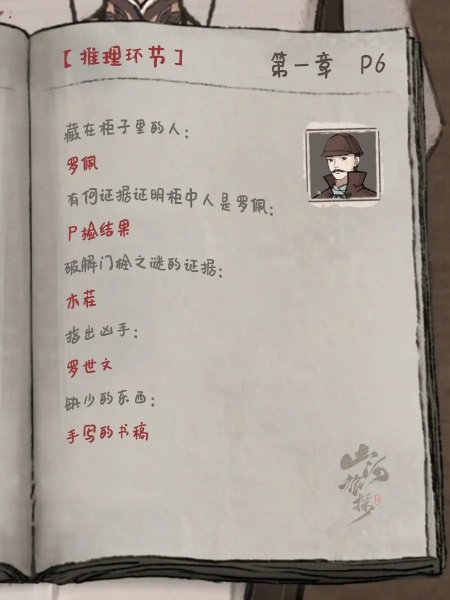 【推理环节】
第一章 P6
藏在柜子里的人：
罗佩
有何证据证明柜中人是罗佩：
尸捡结果
破解门栓之谜的证据：
木茬
指出凶手：
罗世文
缺少的东西：
手写的书稿
山河
诡探